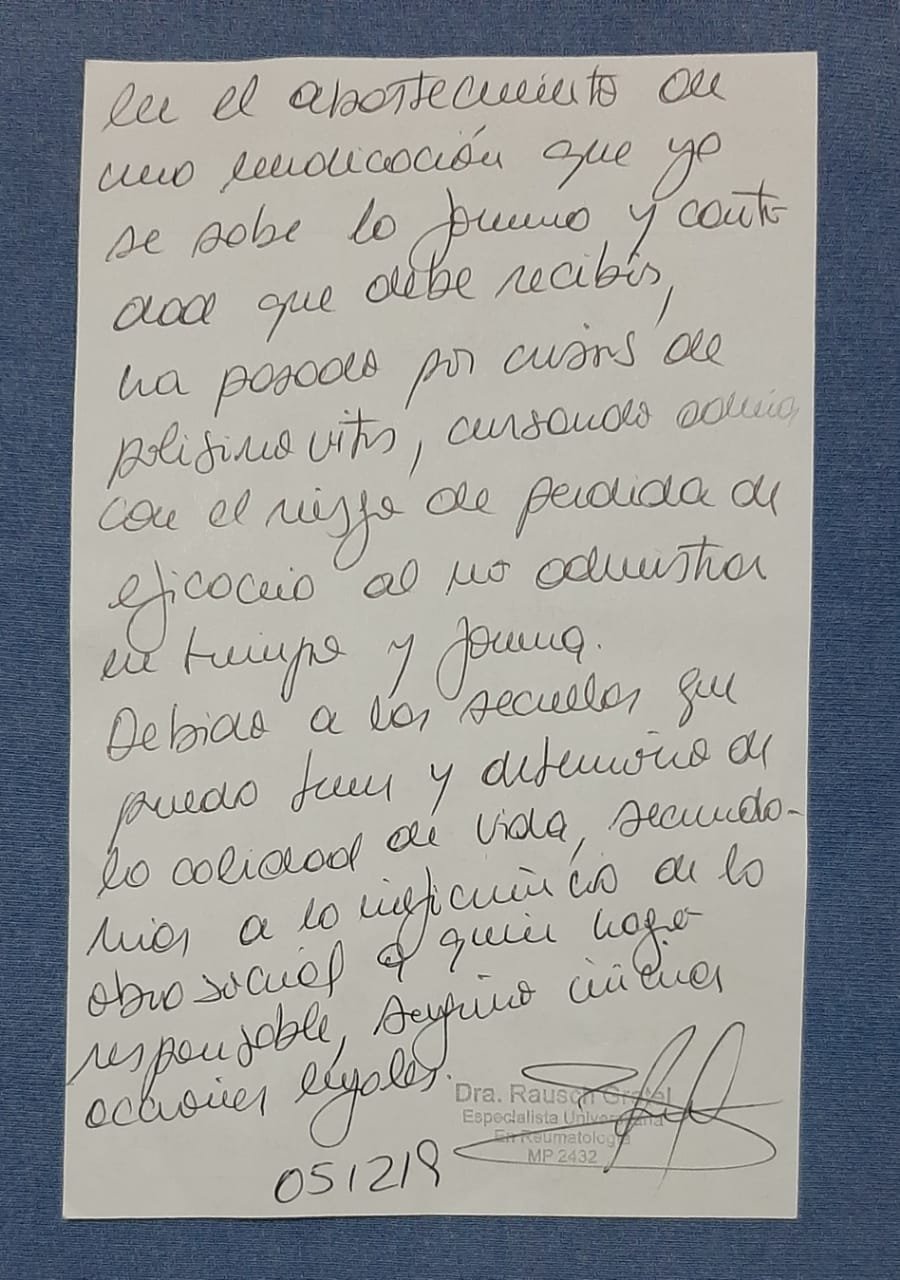 en el abastecimiento de
una medicación que ya
se sabe la forma y canti
dad que debe recibir,
ha pasado por crisis de
polisinovitis, cursando además
con el riesgo de perdida de
eficacia al no administrar
en tiempo y forma.
Debido a las secuelas que
puedo tener y deterioro de
la calidad de vida, secunda-
rias a la ineficiencia de la
obra social a quien hago
responsable, sugiero iniciar
acciones legales.
051219
Dra. Rausch Gretel
Especialista Universitaria
En Reumatología
MP 2432